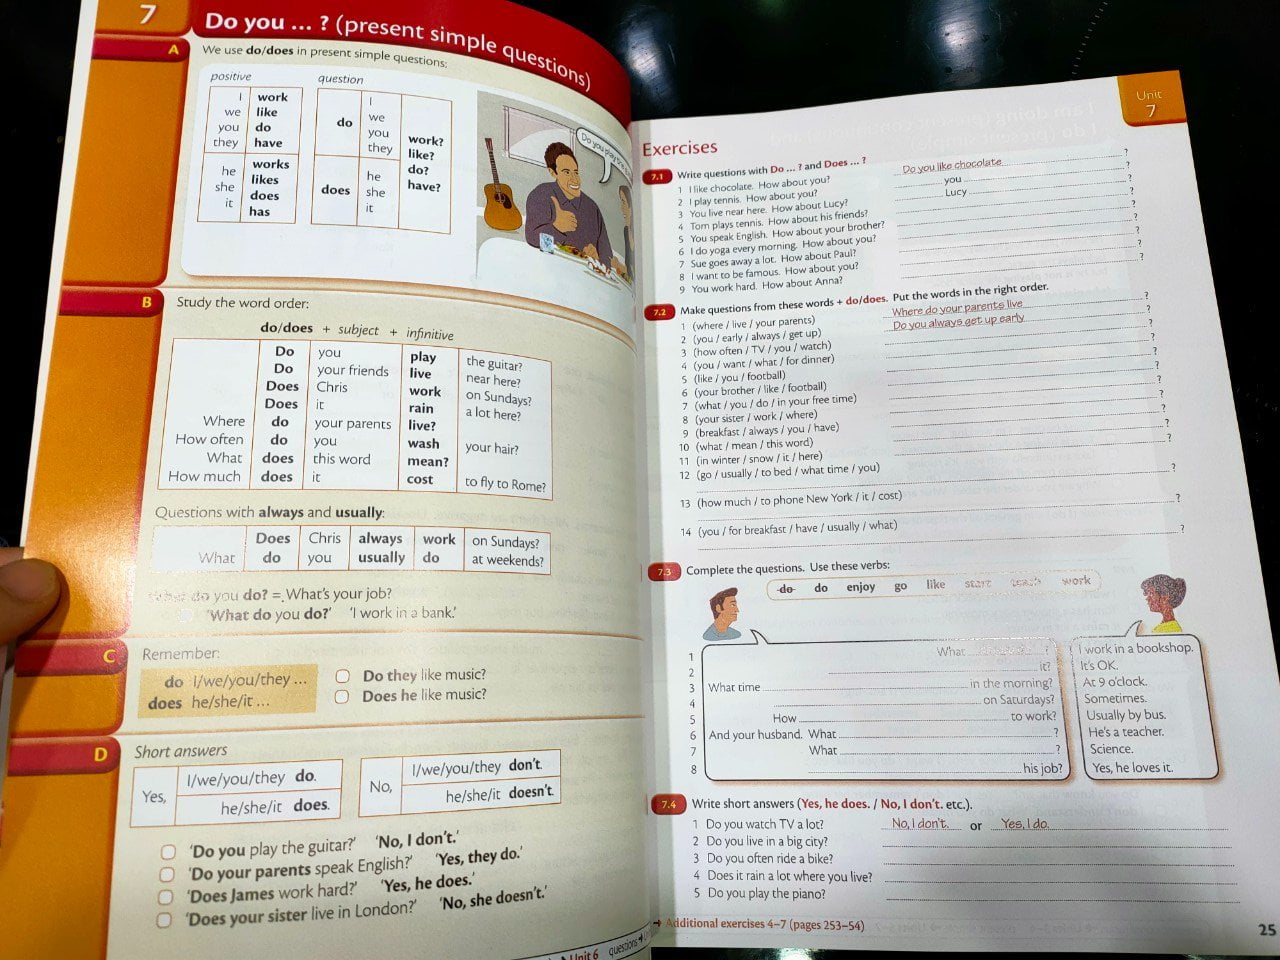 7
Do you ... ? (present simple questions)
A
We use do/does in present simple questions:
positive
question
I
we
you
they
work
like
do
have
he
she
it
works
likes
does
has
do
I
we
you
they
does
he
she
it
work?
like?
do?
have?
Do you play
B
Study the word order:
do/does + subject + infinitive
Do you play the guitar?
Do your friends live near here?
Does Chris work on Sundays?
Does it rain a lot here?
Where do your parents live?
How often do you wash your hair?
What does this word mean?
How much does it cost to fly to Rome?
Questions with always and usually:
Does Chris always work on Sundays?
What do you usually do at weekends?
do you do? = What's your job?
'What do you do?' 'I work in a bank.'
C
Remember:
do I/we/you/they ...
does he/she/it ...
Do they like music?
Does he like music?
D
Short answers
Yes,
I/we/you/they do.
he/she/it does.
No,
I/we/you/they don't.
he/she/it doesn't.
'Do you play the guitar?' 'No, I don't.'
'Do your parents speak English?' 'Yes, they do.'
'Does James work hard?' 'Yes, he does.'
'Does your sister live in London?' 'No, she doesn't.'
Unit 6
questions
Unit
7
Exercises
7.1 Write questions with Do ... ? and Does ... ?
1 I like chocolate. How about you? Do you like chocolate ?
2 I play tennis. How about you? you ?
3 You live near here. How about Lucy? Lucy ?
4 Tom plays tennis. How about his friends? ?
5 You speak English. How about your brother? ?
6 I do yoga every morning. How about you? ?
7 Sue goes away a lot. How about Paul? ?
8 I want to be famous. How about you? ?
9 You work hard. How about Anna? ?
7.2 Make questions from these words + do/does. Put the words in the right order.
1 (where / live / your parents) Where do your parents live ?
2 (you / early / always / get up) Do you always get up early ?
3 (how often / TV / you / watch) ?
4 (you / want / what / for dinner) ?
5 (like / you / football) ?
6 (your brother / like / football) ?
7 (what / you / do / in your free time) ?
8 (your sister / work / where) ?
9 (breakfast / always / you / have) ?
10 (what / mean / this word) ?
11 (in winter / snow / it / here) ?
12 (go / usually / to bed / what time / you)
?
13 (how much / to phone New York / it / cost)
?
14 (you / for breakfast / have / usually / what)
?
7.3 Complete the questions. Use these verbs:
do do enjoy go like start teach work
1 What ?
2 it?
3 What time in the morning?
4 on Saturdays?
5 How to work?
6 And your husband. What ?
7 What ?
8 his job?
I work in a bookshop.
It's OK.
At 9 o'clock.
Sometimes.
Usually by bus.
He's a teacher.
Science.
Yes, he loves it.
7.4 Write short answers (Yes, he does. / No, I don't. etc.).
1 Do you watch TV a lot? No, I don't. or Yes, I do.
2 Do you live in a big city?
3 Do you often ride a bike?
4 Does it rain a lot where you live?
5 Do you play the piano?
→ Additional exercises 4–7 (pages 253–54)
25